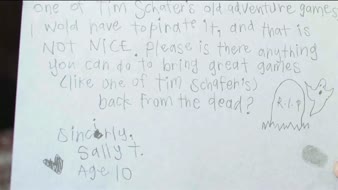 one of Tim Schafer's old adventure games
I wold have topirate it, and that is
NOT NICE. please is there anything
you can do to bring great games
(like one of Tim Schafer's)
back from the dead?
R.I.P
Sincerly,
Sally T.
Age 10